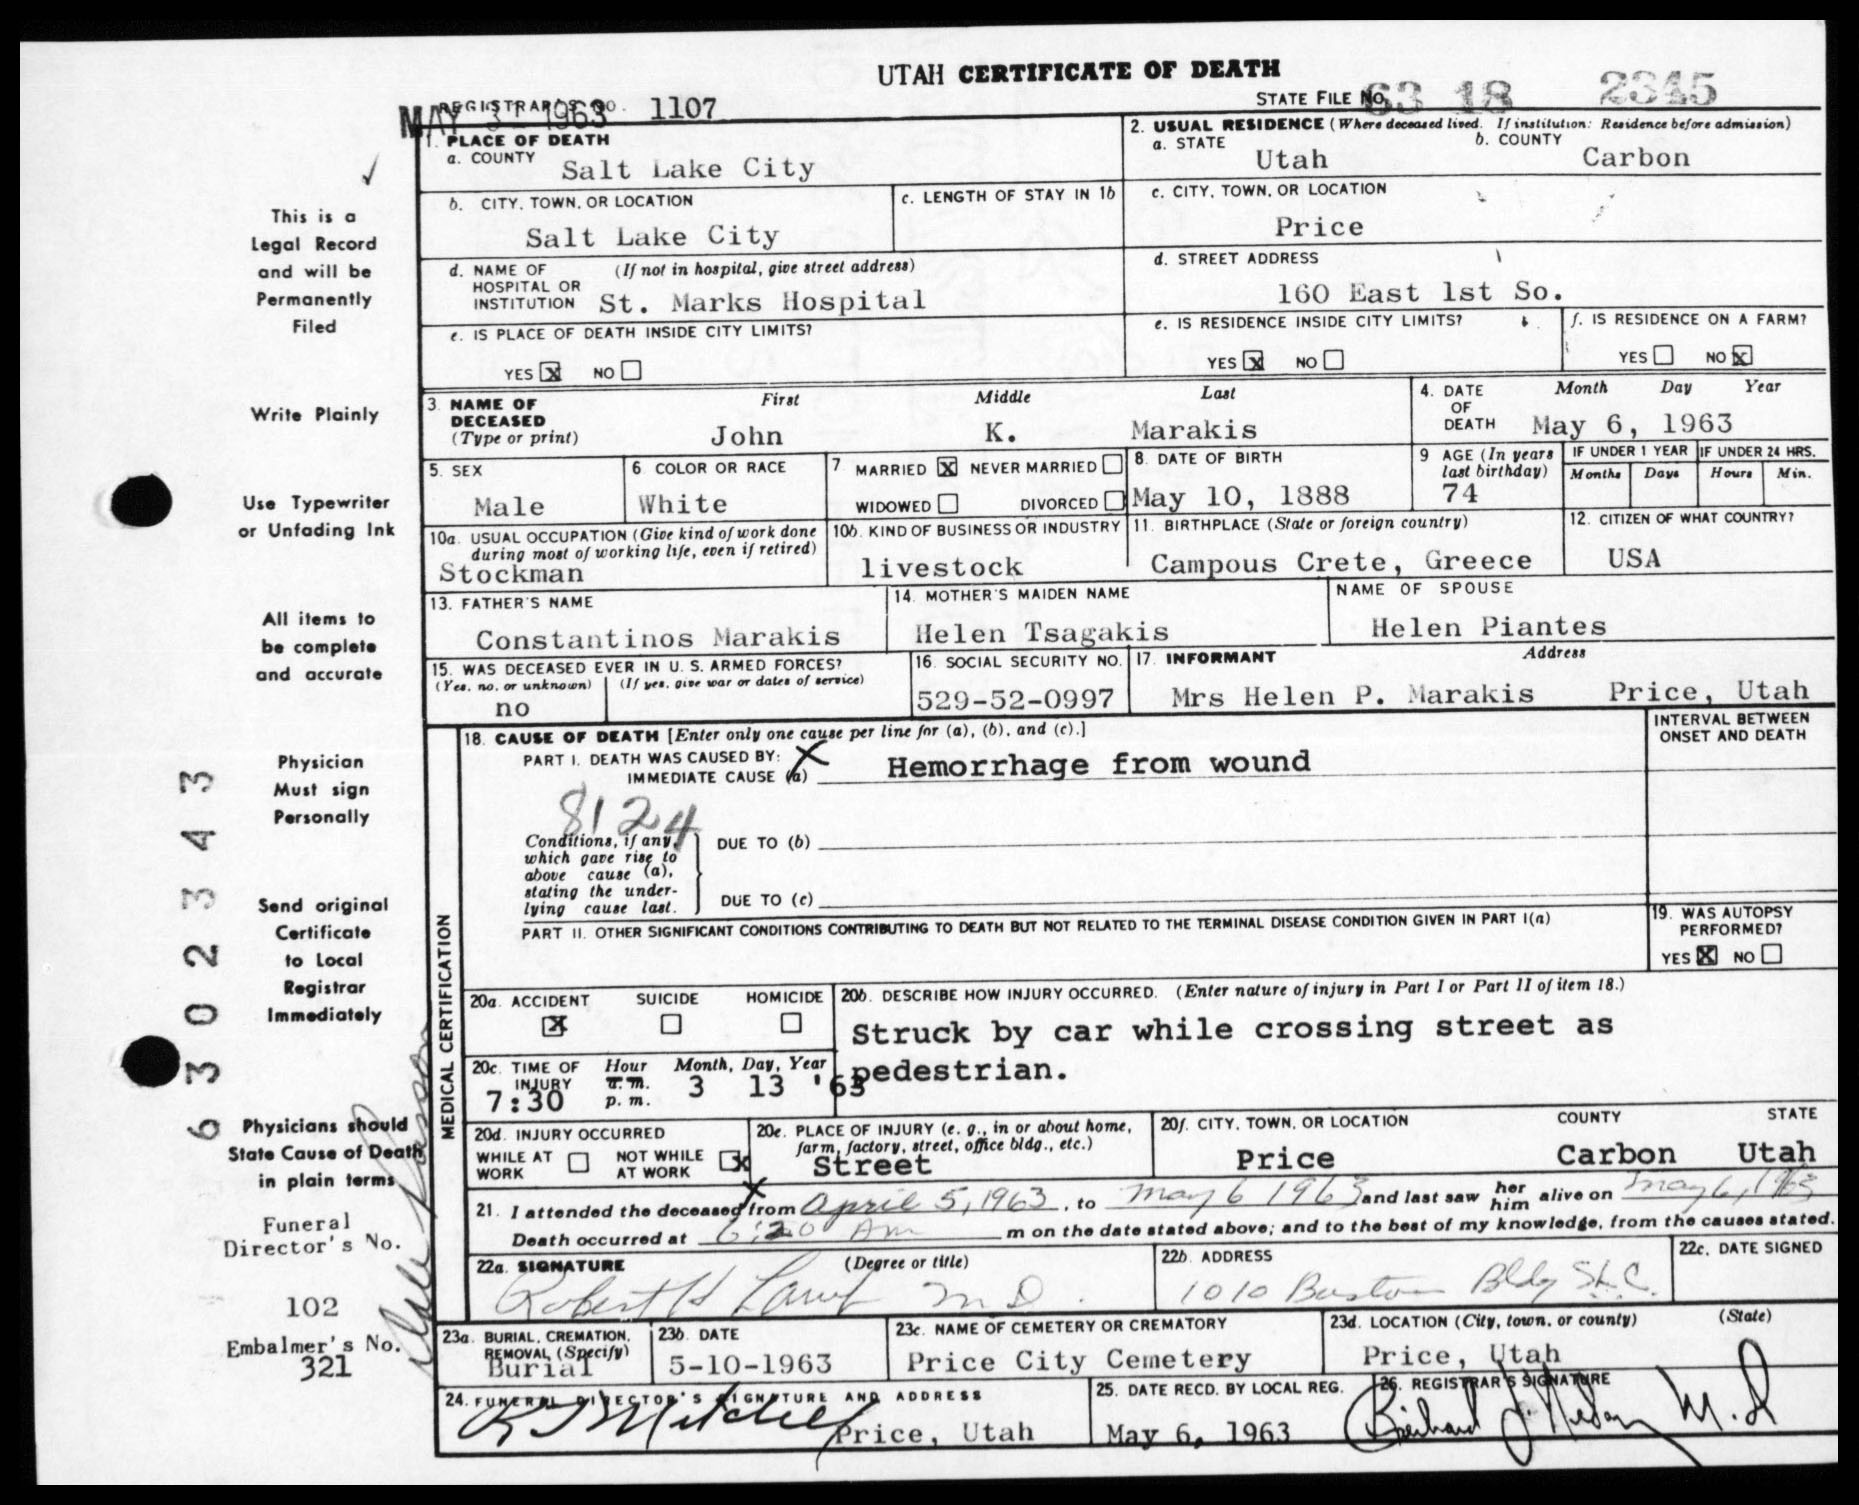 UTAH CERTIFICATE OF DEATH
REGISTRAR'S NO. 1107
MAY 3 - 1963
STATE FILE NO. 63 18 2345
1. PLACE OF DEATH
a. COUNTY Salt Lake City
2. USUAL RESIDENCE (Where deceased lived. If institution: Residence before admission)
a. STATE Utah b. COUNTY Carbon
b. CITY, TOWN, OR LOCATION Salt Lake City
c. LENGTH OF STAY IN 1b
c. CITY, TOWN, OR LOCATION Price
d. NAME OF HOSPITAL OR INSTITUTION (If not in hospital, give street address) St. Marks Hospital
d. STREET ADDRESS 160 East 1st So.
e. IS PLACE OF DEATH INSIDE CITY LIMITS?
YES X NO
e. IS RESIDENCE INSIDE CITY LIMITS?
YES X NO
f. IS RESIDENCE ON A FARM?
YES NO X
3. NAME OF DECEASED (Type or print)
First Middle Last
John K. Marakis
4. DATE OF DEATH Month Day Year
May 6, 1963
5. SEX Male
6. COLOR OR RACE White
7. MARRIED X NEVER MARRIED
WIDOWED DIVORCED
8. DATE OF BIRTH May 10, 1888
9. AGE (In years last birthday) 74
IF UNDER 1 YEAR Months Days
IF UNDER 24 HRS. Hours Min.
10a. USUAL OCCUPATION (Give kind of work done during most of working life, even if retired)
Stockman
10b. KIND OF BUSINESS OR INDUSTRY
livestock
11. BIRTHPLACE (State or foreign country)
Campous Crete, Greece
12. CITIZEN OF WHAT COUNTRY?
USA
13. FATHER'S NAME
Constantinos Marakis
14. MOTHER'S MAIDEN NAME
Helen Tsagakis
NAME OF SPOUSE
Helen Piantes
15. WAS DECEASED EVER IN U. S. ARMED FORCES?
(Yes, no, or unknown) (If yes, give war or dates of service)
no
16. SOCIAL SECURITY NO.
529-52-0997
17. INFORMANT Address
Mrs Helen P. Marakis Price, Utah
MEDICAL CERTIFICATION
18. CAUSE OF DEATH [Enter only one cause per line for (a), (b), and (c).]
INTERVAL BETWEEN ONSET AND DEATH
PART I. DEATH WAS CAUSED BY: X
IMMEDIATE CAUSE (a) Hemorrhage from wound
8124
Conditions, if any, which gave rise to above cause (a), stating the underlying cause last.
DUE TO (b)
DUE TO (c)
PART II. OTHER SIGNIFICANT CONDITIONS CONTRIBUTING TO DEATH BUT NOT RELATED TO THE TERMINAL DISEASE CONDITION GIVEN IN PART I(a)
19. WAS AUTOPSY PERFORMED?
YES X NO
20a. ACCIDENT SUICIDE HOMICIDE
X
20b. DESCRIBE HOW INJURY OCCURRED. (Enter nature of injury in Part I or Part II of item 18.)
Struck by car while crossing street as
pedestrian.
20c. TIME OF INJURY Hour a.m. p.m. Month, Day, Year
7:30 3 13 '63
20d. INJURY OCCURRED
WHILE AT WORK NOT WHILE AT WORK X
20e. PLACE OF INJURY (e. g., in or about home, farm, factory, street, office bldg., etc.)
Street
20f. CITY, TOWN, OR LOCATION COUNTY STATE
Price Carbon Utah
21. I attended the deceased from April 5, 1963, to May 6 1963 and last saw her him alive on May 6, 1963
Death occurred at 6:20 Am m on the date stated above; and to the best of my knowledge, from the causes stated.
22a. SIGNATURE (Degree or title)
Robert H M D.
22b. ADDRESS
1010 Bldg SLC.
22c. DATE SIGNED
23a. BURIAL, CREMATION, REMOVAL (Specify)
Burial
23b. DATE
5-10-1963
23c. NAME OF CEMETERY OR CREMATORY
Price City Cemetery
23d. LOCATION (City, town, or county) (State)
Price, Utah
24. FUNERAL DIRECTOR'S SIGNATURE AND ADDRESS
Mitchell Price, Utah
25. DATE RECD. BY LOCAL REG.
May 6, 1963
26. REGISTRAR'S SIGNATURE
M.D
This is a
Legal Record
and will be
Permanently
Filed
Write Plainly
Use Typewriter
or Unfading Ink
All items to
be complete
and accurate
Physician
Must sign
Personally
Send original
Certificate
to Local
Registrar
Immediately
Physicians should
State Cause of Death
in plain terms
Funeral
Director's No.
102
Embalmer's No.
321
6 3 0 2 3 4 3